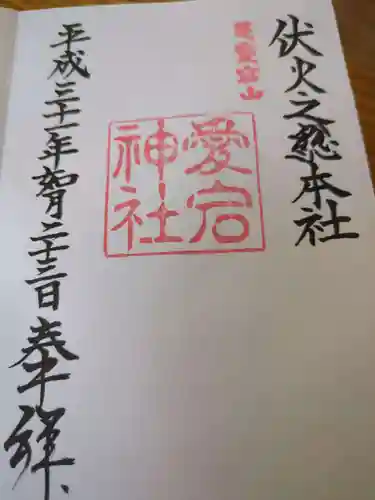 伏火之総本社
愛宕神社
平成三十一年如月二十三日奉拝